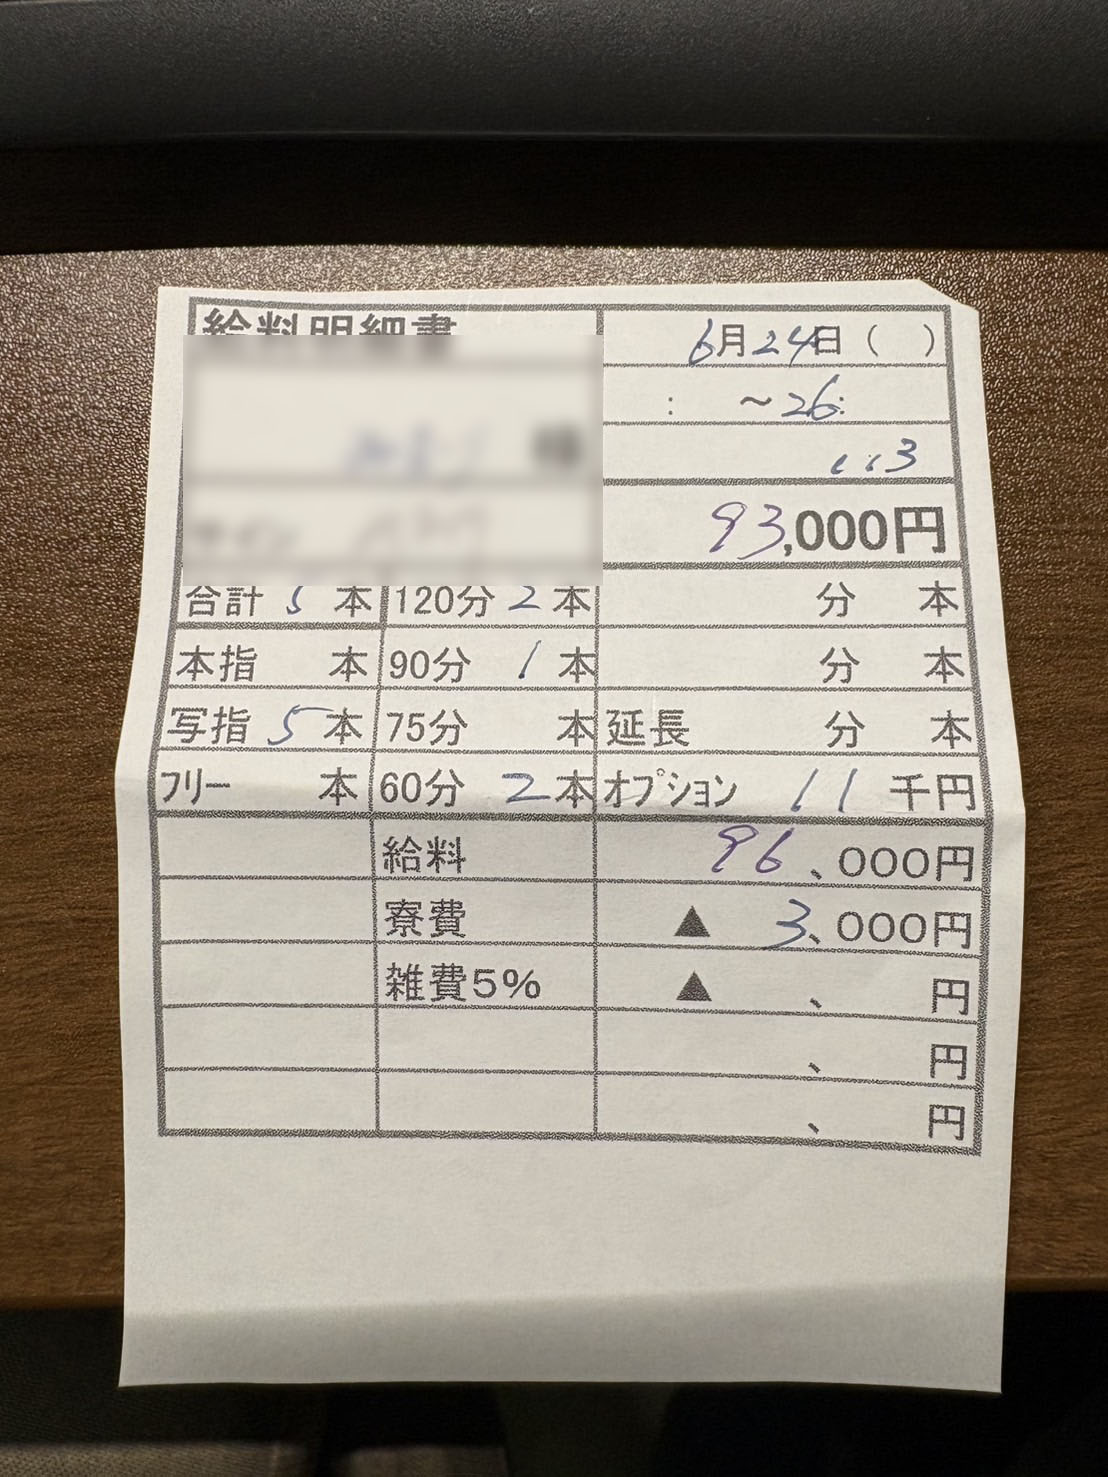 給料明細書
6月24日( )
: ~26:
93,000円
合計 5 本 120分 2 本 分 本
本指 本 90分 1 本 分 本
写指 5 本 75分 本 延長 分 本
フリー 本 60分 2 本 オプション 11 千円
給料 96、000円
寮費 ▲ 3、000円
雑費5% ▲ 、 円
、 円
、 円